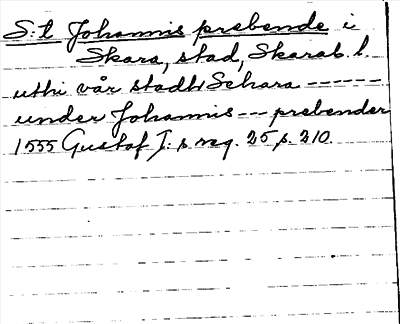 S:t Johannis prebende i
Skara, stad, Skarab. l.
uthi vår stadh Schara ------
under Johannis --- prebender
1555 Gustaf I:s reg. 25 s. 210.